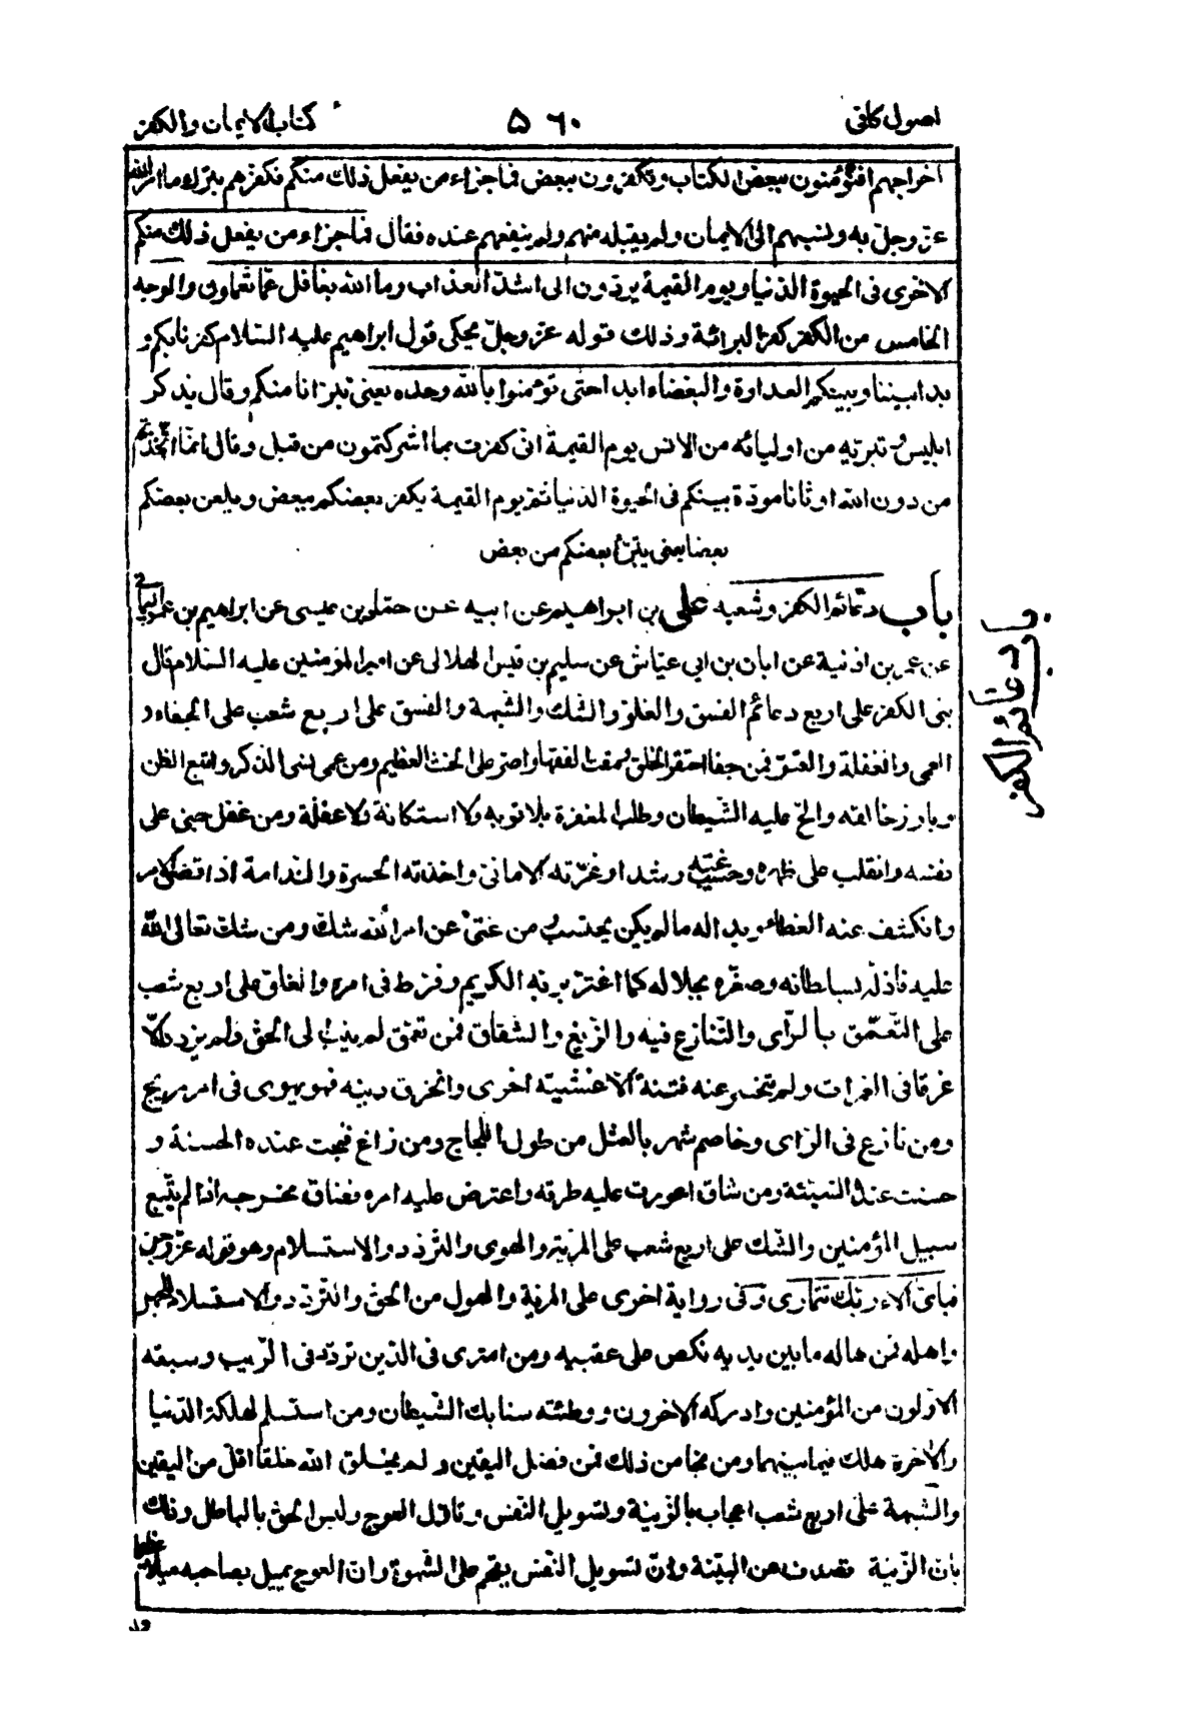 اصول کافی
۵۶۰
کتاب الایمان والکفر
اخراجهم افتؤمنون ببعض الکتاب وتکفرون ببعض فما جزاء من یفعل ذلك منکم فکفرهم بترك ما امر الله
عز وجل به ونسبهم الی الایمان ولم یقبله منهم ولم ینفعهم عنده فقال فما جزاء من یفعل ذلك منکم
الاخزی فی الحیوة الدنیا ویوم القیمة یردون الی اشد العذاب وما الله بغافل عما تعملون والوجه
الخامس من الکفر کفر البرائة وذلك قوله عز وجل یحکی قول ابراهیم علیه السلام کفرنا بکم و
بدا بیننا وبینکم العداوة والبغضاء ابدا حتی تؤمنوا بالله وحده یعنی تبرأنا منکم وقال یذکر
ابلیس وتبرئه من اولیائه من الانس یوم القیمة انی کفرت بما اشرکتمون من قبل وقال انما اتخذتم
من دون الله اوثانا مودة بینکم فی الحیوة الدنیا ثم یوم القیمة یکفر بعضکم ببعض ویلعن بعضکم
بعضا یعنی یتبرأ بعضکم من بعض
باب دعائم الکفر وشعبه علی بن ابراهیم عن ابیه عن حماد بن عیسی عن ابراهیم بن عمر الیمانی
عن عمر بن اذینة عن ابان بن ابی عیاش عن سلیم بن قیس الهلالی عن امیر المؤمنین علیه السلام قال
بنی الکفر علی اربع دعائم الفسق والغلو والشك والشبهة والفسق علی اربع شعب علی الجفاء و
العمی والغفلة والعتو فمن جفا احتقر الخلق ومقت الفقهاء واصر علی الحنث العظیم ومن عمی نسی الذکر واتبع الظن
وبارز خالقه والح علیه الشیطان وطلب المغفرة بلا توبه ولا استکانة ولا غفلة ومن غفل جنی علی
نفسه وانقلب علی ظهره وحسب غیه رشدا وغرته الامانی واخذته الحسرة والندامة اذا قضی الامر
وانکشف عنه الغطاء وبدا له ما لم یکن یحتسب ومن عتی عن امر الله شك ومن شك تعالی الله
علیه فأذله بسلطانه وصغره بجلاله کما اغتر بربه الکریم وفرط فی امره والغلو علی اربع شعب
علی التعمق بالرأی والتنازع فیه والزیغ والشقاق فمن تعمق لم ینب الی الحق ولم یزدد الا
غرقا فی الغمرات ولم تنحسر عنه فتنة الا غشیته اخری وانخرق دینه فهو یهوی فی امر مریج
ومن نازع فی الرأی وخاصم شهر بالعثل من طول اللجاج ومن زاغ قبحت عنده الحسنة و
حسنت عنده السیئة ومن شاق اعورت علیه طرقه واعترض علیه امره فضاق مخرجه اذا لم یتبع
سبیل المؤمنین والشك علی اربع شعب علی المریة والهوی والتردد والاستسلام وهو قوله عز وجل
فبای الاء ربك تتماری وفی روایة اخری علی المریة والهول من الحق والتردد والاستسلام للجهل
واهله فمن هاله ما بین یدیه نکص علی عقبیه ومن امتری فی الدین تردد فی الریب وسبقه
الاولون من المؤمنین وادرکه الاخرون ووطئته سنابك الشیطان ومن استسلم لهلکة الدنیا
والاخرة هلك فیما بینهما ومن نجا من ذلك فمن فضل الیقین ولم یخلق الله خلقا اقل من الیقین
والشبهة علی اربع شعب اعجاب بالزینة وتسویل النفس وتأول العوج ولبس الحق بالباطل وذلك
بان الزینة تصدف عن البینة وان تسویل النفس یقحم علی الشهوة وان العوج یمیل بصاحبه میلا عظیما
وان
باب دعائم الکفر